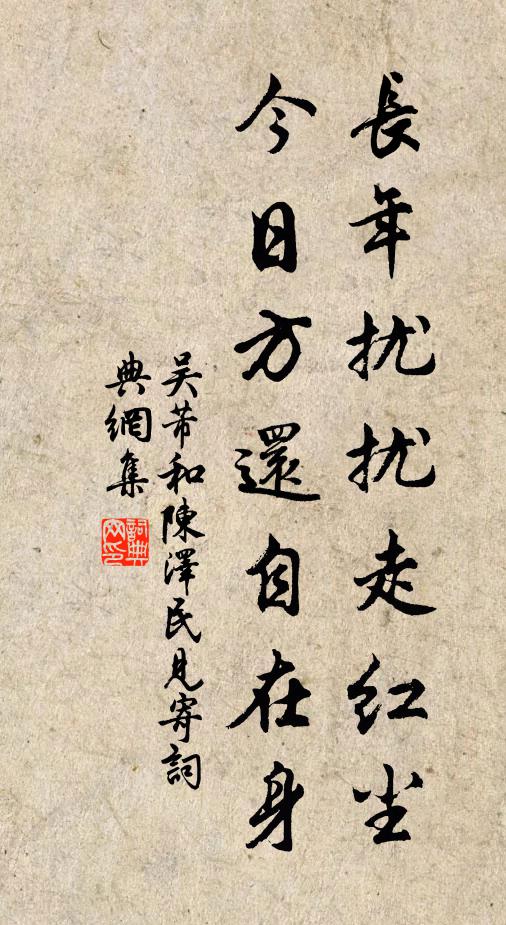 長年扰扰走红尘
今日方還自在身
吴芾和陳澤民見寄詞
典網集
詞典
网印